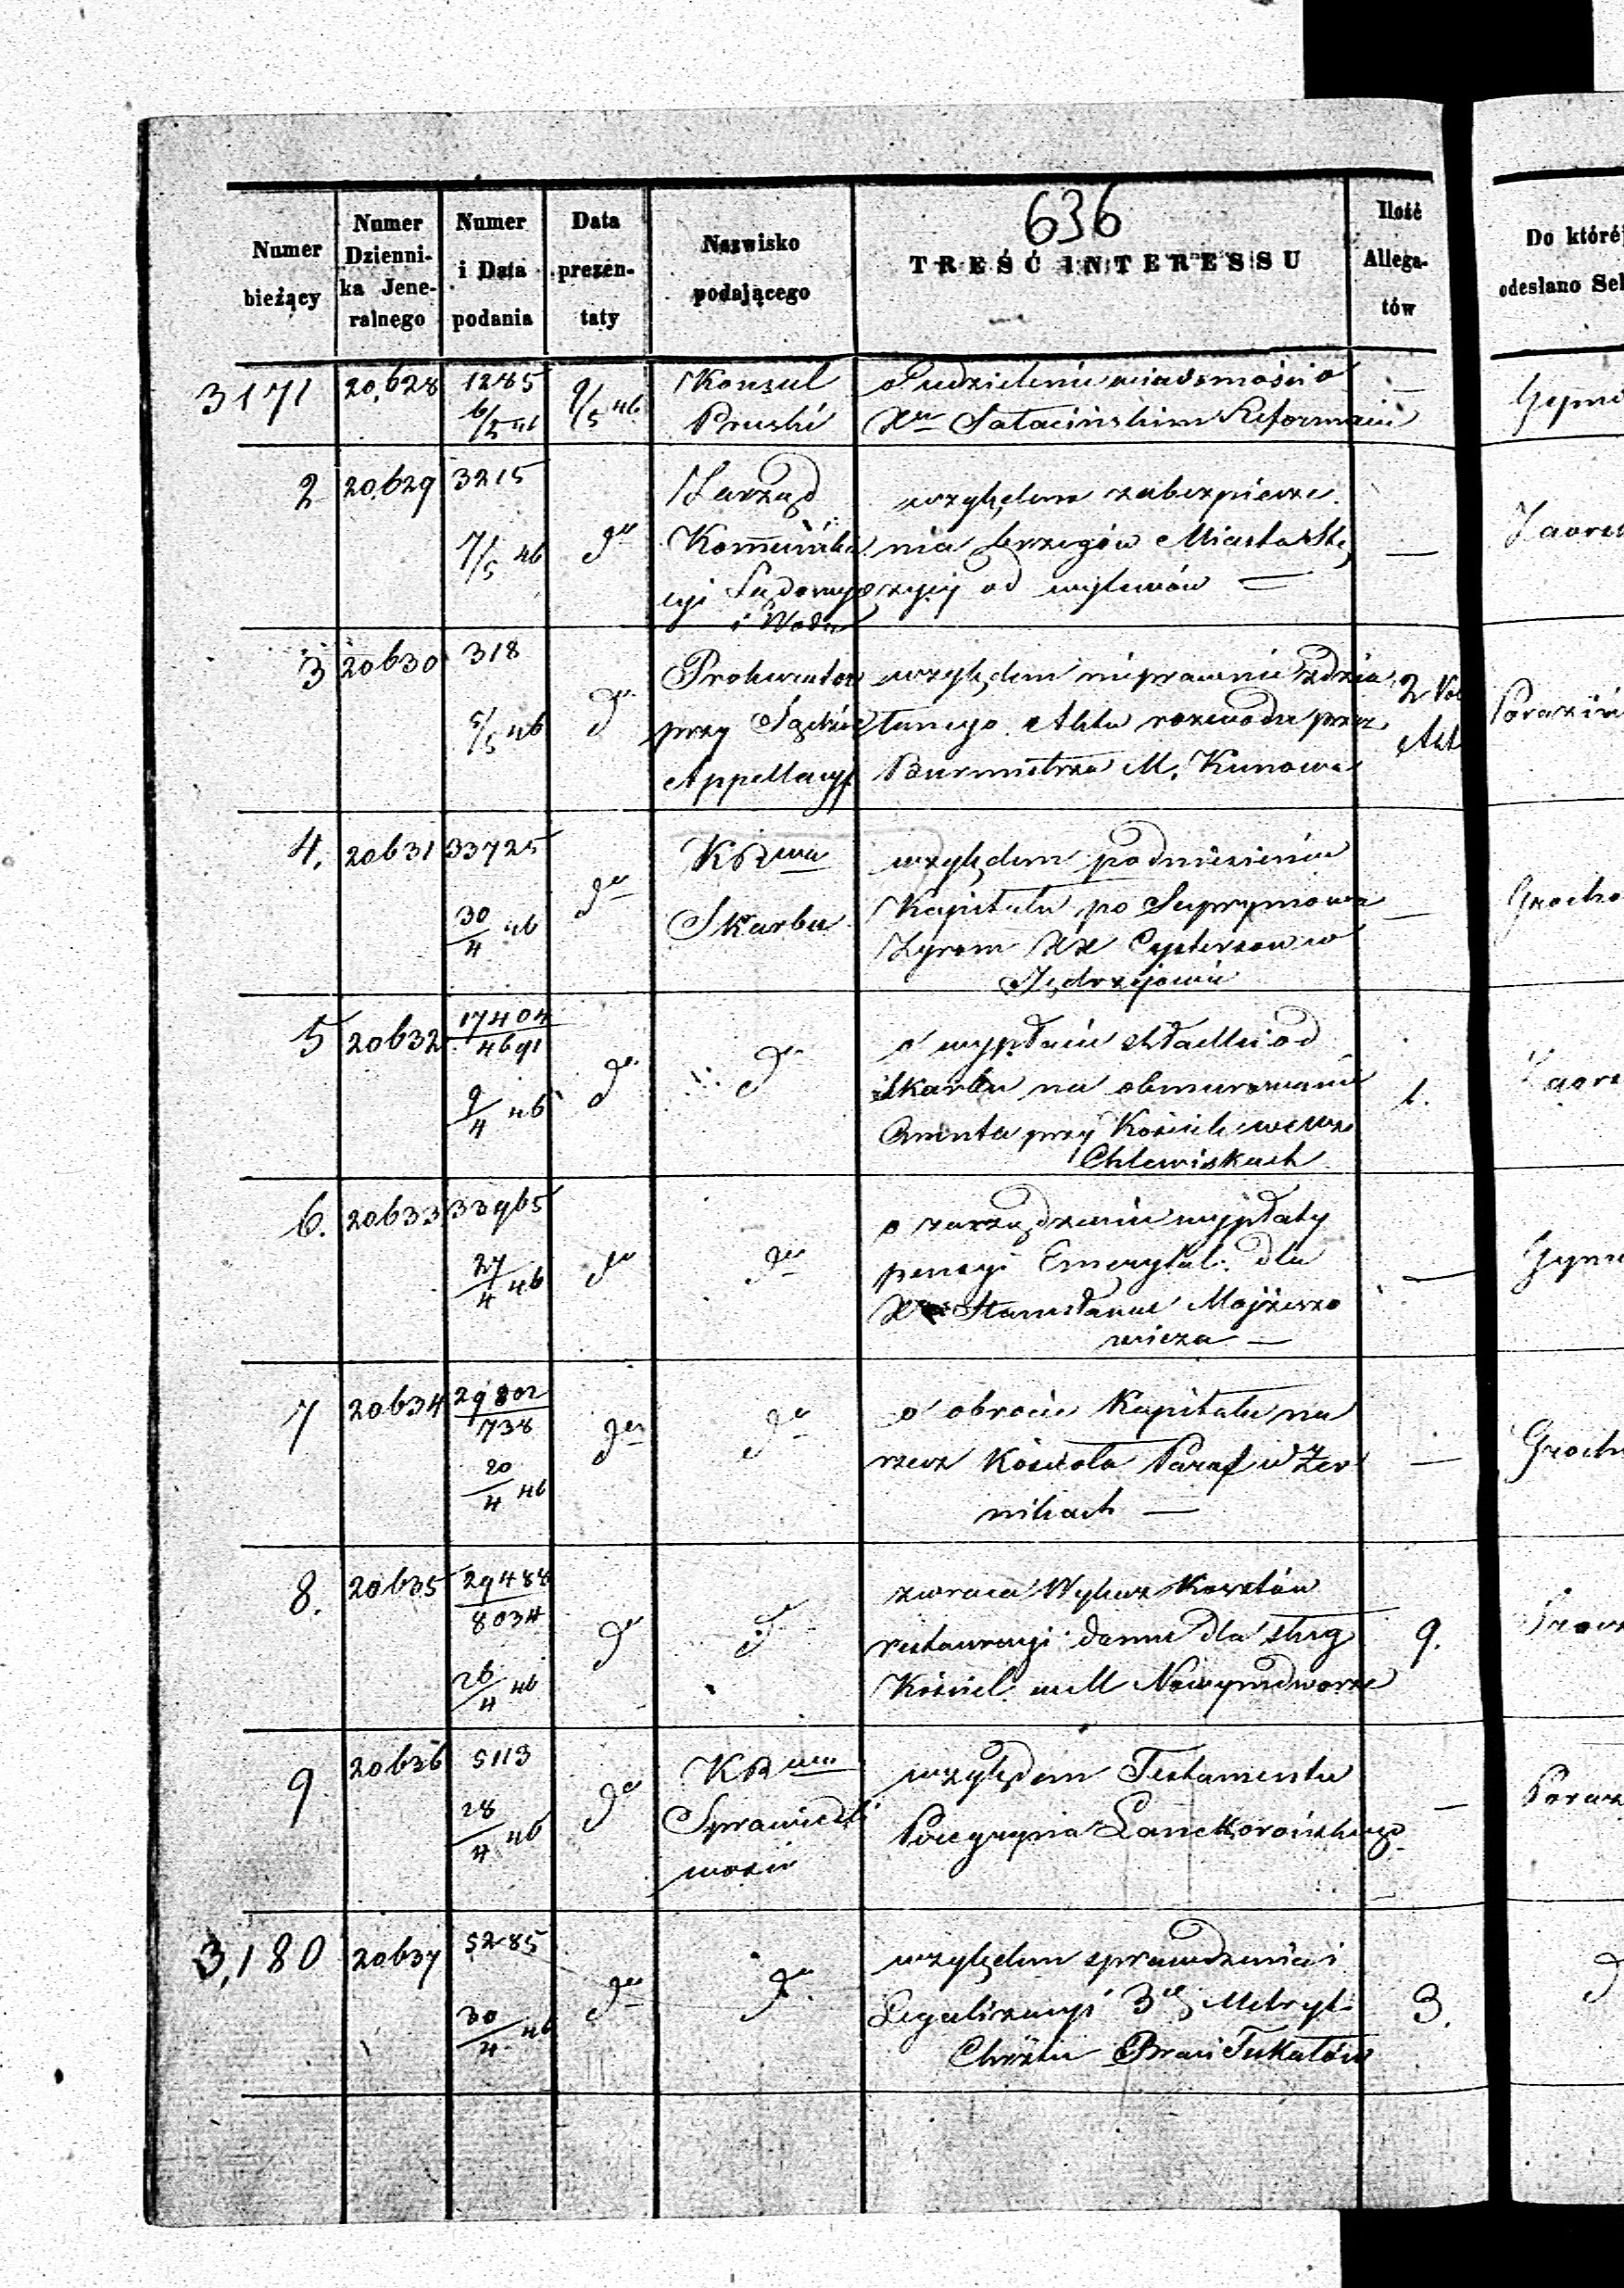 636
Numer bieżący
Numer Dzienni- ka Jene- ralnego
Numer i Data podania
Data prezen- taty
Nazwisko podającego
TREŚĆ INTERESSU
Ilość Allega- tów
Do któréj
odesłano
3171 20,628 1285 6/5 46 9/5 46
Konsul
Pruski
o udzielenie wiadomości o
Reformacie
—
2 20629 3215 7/5 46 do
Zarząd
Kommunika
cyi Lądowych
i Wodn
względem zabezpiecze
nia brzegów Miasta
od wylewów =
—
3 20630 318 5/5 46 do
Prokurator
przy Sądzie
Appellacyj
względem nieprawnie zdzia
łanego Aktu rozwodu przez
Burmistrza M. Kunowa
2 Vol
Akt
4. 20631 33725 30/4 46 do
KRwa
Skarbu
względem podniesienia
Kapitału po Suprymowa
XX Cystersow w
Jędrzejowie
—
5 20632 17404/4691 9/4 46 do
do
o wypłacie składki od
skarbu na obmurowanie
Cmenta przy Kościele we Wsi
Chlewiskach
1.
6. 20633 33965 27/4 46 do
do
o zarządzenie wypłaty
pensyi Emerytal. dla
Stanisława Mojżeszo
wicza —
—
7 20634 29802/738 20/4 46 do
do
o obrocie Kapitału na
rzecz Kościoła Paraf w Żer
nikach —
—
8. 20635 29488/8034 26/4 46 do
do
zwraca Wykaz Kosztów
restauracyi domu dla sług
Kościel. w M Nowymdworze
9.
9 20636 5113 28/4 46 do
KRwa
Sprawiedli
wości
względem Testamentu
Lanckorońskiego
—
3,180 20637 5285 30/4 46 do
do
względem sprawdzenia i
Legalizacyi 3ch Metryk
Chrztu Braci Tukałów
3.